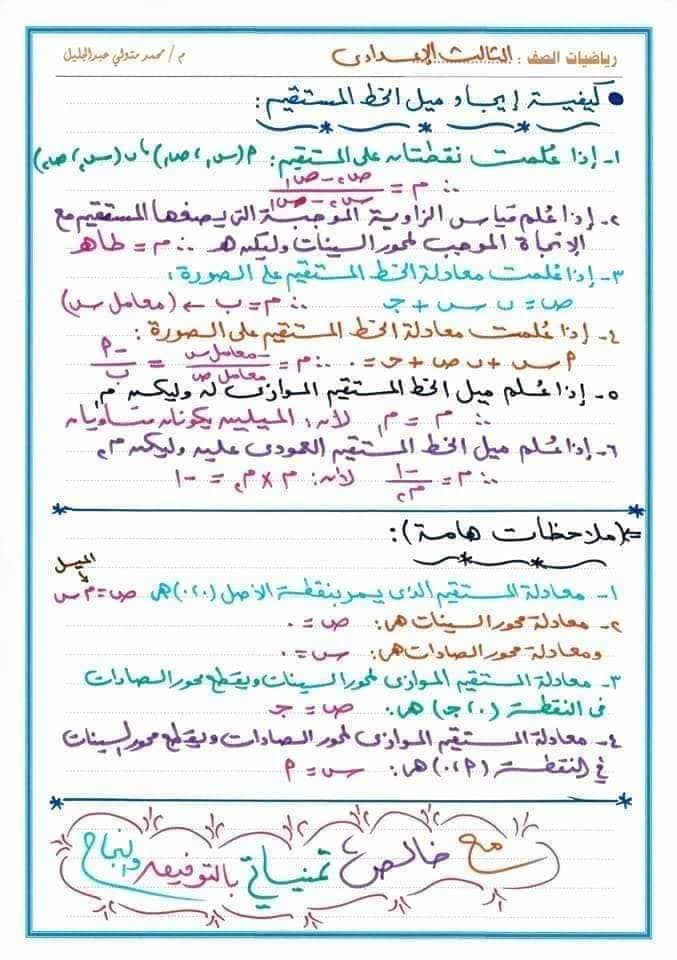 رياضيات الصف : الثالث الإعدادى م / محمد متولي عبدالجليل
● كيفية إيجاد ميل الخط المستقيم :
١- إذا عُلمت نقطتان على المستقيم : م (س١ ، ص١) ، ن (س٢ ، ص٢)
∴ م = ص٢ - ص١ / س٢ - ص١
٢- إذا عُلم قياس الزاوية الموجبة التى يصنعها المستقيم مع
الإتجاة الموجب لمحور السينات وليكن هـ ∴ م = طا هـ
٣- إذا عُلمت معادلة الخط المستقيم على الصورة :
ص = ب س + جـ ∴ م = ب ← (معامل س)
٤- إذا عُلمت معادلة الخط المستقيم على الصورة :
م س + ب ص + جـ = ٠ ∴ م = -معامل س / معامل ص = -م / ب
٥- إذا عُلم ميل الخط المستقيم الموازى له وليكن م١
∴ م = م١ لأن : الميلين يكونان متساويان
٦- إذا عُلم ميل الخط المستقيم العمودى عليه وليكن م٢
∴ م = -١ / م٢ لأن : م × م٢ = -١
(ملاحظات هامة) :
الميل
١- معادلة المستقيم الذى يمر بنقطة الأصل (٠،٠) هى ص = م س
٢- معادلة محور السينات هى : ص = ٠
ومعادلة محور الصادات هى : س = ٠
٣- معادلة المستقيم الموازى لمحور السينات ويقطع محور الصادات
فى النقطة (٠ ، جـ) هى : ص = جـ
٤- معادلة المستقيم الموازى لمحور الصادات ويقطع محور السينات
في النقطة (م ، ٠) هى : س = م
مع خالص تمنياتي بالتوفيق والنجاح